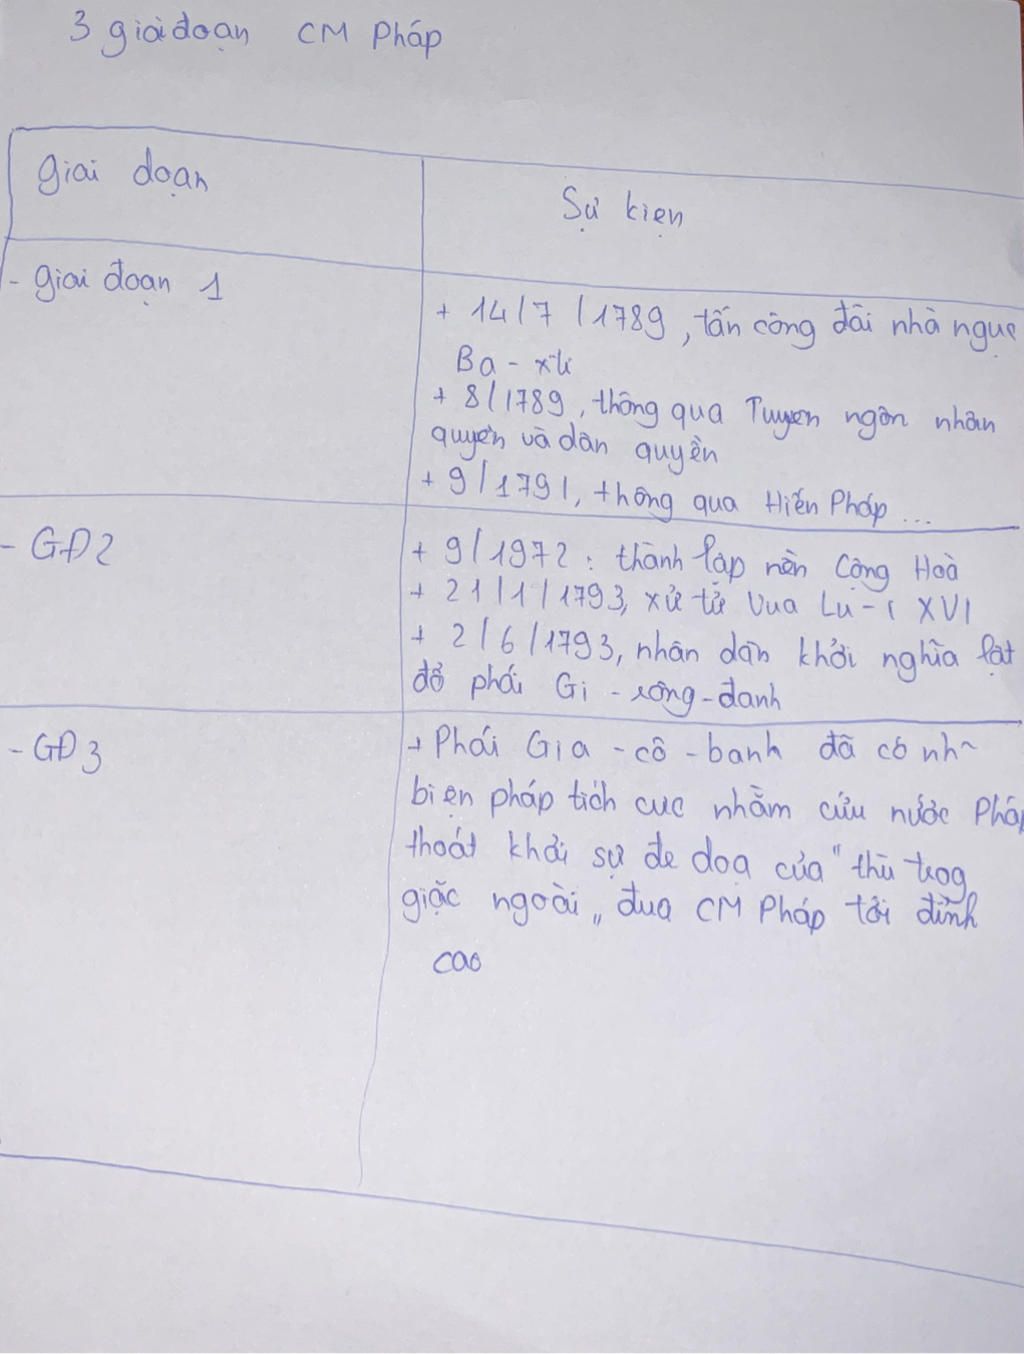 3 giai đoạn CM Pháp
giai đoạn
Sự kiện
- giai đoạn 1
+ 14/7/1789, tấn công đài nhà ngục
Ba - xti
+ 8/1789, thông qua Tuyen ngôn nhân
quyền và dân quyền
+ 9/1791, thông qua Hiến Pháp ...
- GĐ2
+ 9/1972 : thành lập nền Cộng Hoà
+ 21/1/1793, xử tử Vua Lu-i XVI
+ 2/6/1793, nhân dân khởi nghĩa lật
đổ phái Gi - rông - đanh
- GĐ3
+ Phái Gia - cô - banh đã có nh~
biện pháp tích cực nhằm cứu nước Pháp
thoát khỏi sự đe doạ của "thù trog
giặc ngoài„ đưa CM Pháp tới đỉnh
cao